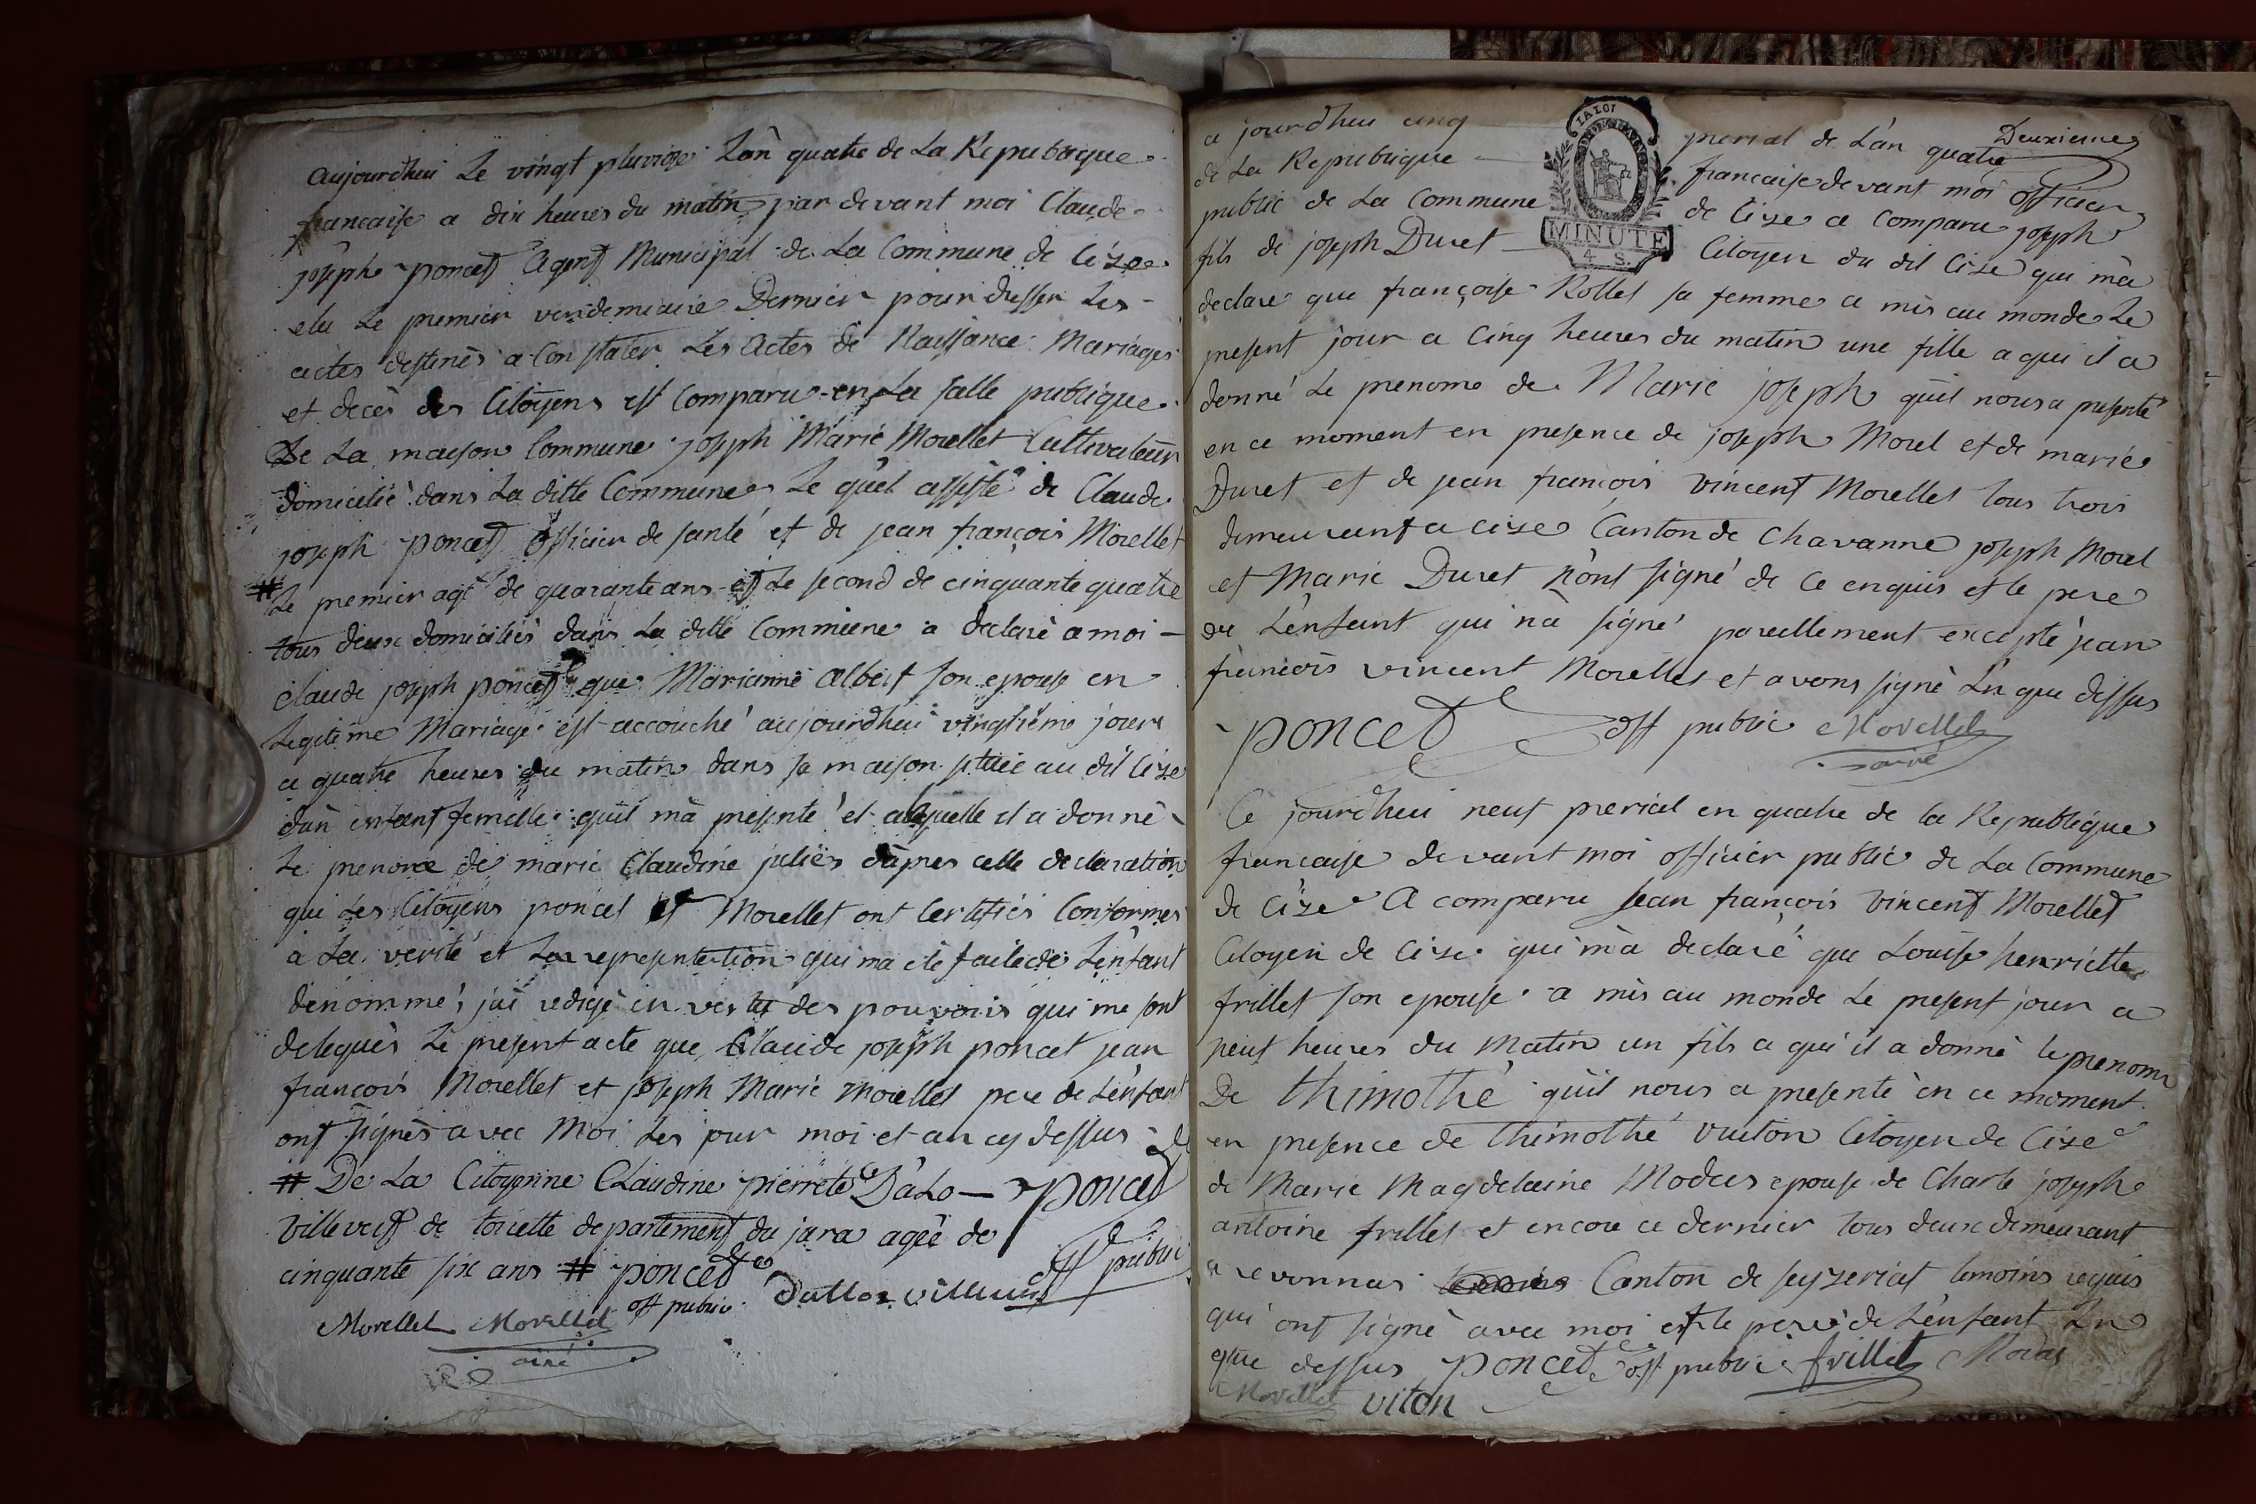 aujourdhui Le vingt pluviose Lan quatre de La Republique
francaise a dix heures du matin par devant moi Claude
joseph poncet Agent Municipal de La Commune de Cize
elu Le premier vendemiaire Dernier pour dresser Les
actes destinés a Constater Les Actes de Naissance Mariages
et decès des Citoyens est Comparu en La salle publique
De La maison Commune joseph Marie Morellet Cultivateur
domicilié dans La ditte Commune Le quel assisté de Claude
joseph poncet officier de santé et de jean françois Morellet
# Le premier agé de quarante ans et Le second de cinquante quatre
tous deux domiciliés dans La ditte Commune a declaré a moi
claude joseph poncet que Marianne Albert son epouse en
Legitime Mariage est accouché aujourdhui vingtième jour
a quatre heures du matin dans sa maison située au dit Cize
dun enfant femelle quil ma présenté et alaquelle il a donné
Le prenom de marie Claudine julie daprès cette declaration
que Les Citoyens poncet et Morellet ont Certifiés Conformes
a La verité et La representation qui ma été faite de L'enfant
denommé, jai redigé en vertu des pouvoirs qui me sont
delegués Le present acte que Claude joseph poncet jean
francois Morellet et joseph Marie Morellet pere de L'enfant
ont signés avec Moi Les jour moi et an cy dessus
# De La Citoyenne Claudine pierrete Dalo — poncet
villevert de toirette departement du jura agée de off public
cinquante six ans # poncet off public
Morellet Morellet ainé
ce jourdhui cinq prerial de L'an quatre Deuxieme
de La Republique francaise devant moi officier
public de La Commune de Cize a comparu joseph
fils de joseph Duret Citoyen du dit Cize qui m'a
declaré que françoise Rollet sa femme a mis au monde Le
present jour a Cinq heures du matin une fille a qui il a
donné Le prenome de Marie joseph quil nous a presenté
en ce moment en presence de joseph Morel et de marie
Duret et de jean francois vincent Morellet tous trois
demeurant a cize Canton de Chavanne joseph Morel
et Marie Duret n'ont signé de ce enquis et le pere
de L'enfant qui na signé pareillement excepté jean
francois vincent Morellet et avons signé L'n que dessus
poncet off public Morellet ainé
LA LOI
MINUTE
4 S.
Ce jourdhui neuf prerial en quatre de la Republique
francaise devant moi officier public de La Commune
de Cize A comparu jean françois vincent Morellet
Citoyen de Cize qui m'a declaré que Louise henriette
frillet son epouse a mis au monde Le present jour a
neuf heures du matin un fils a qui il a donné le prenom
De thimothé quil nous a presenté en ce moment
en presence de thimothé vuiton Citoyen de Cize
de Marie Magdelaine Modas epouse de Charle joseph
antoine frillet et encore ce dernier tous deux demeurant
a revonnas Canton de seyzeriat temoins requis
qui ont signé avec moi et le pere de L'enfant L'n
que dessus poncet off public frillet Modas
Morellet viton